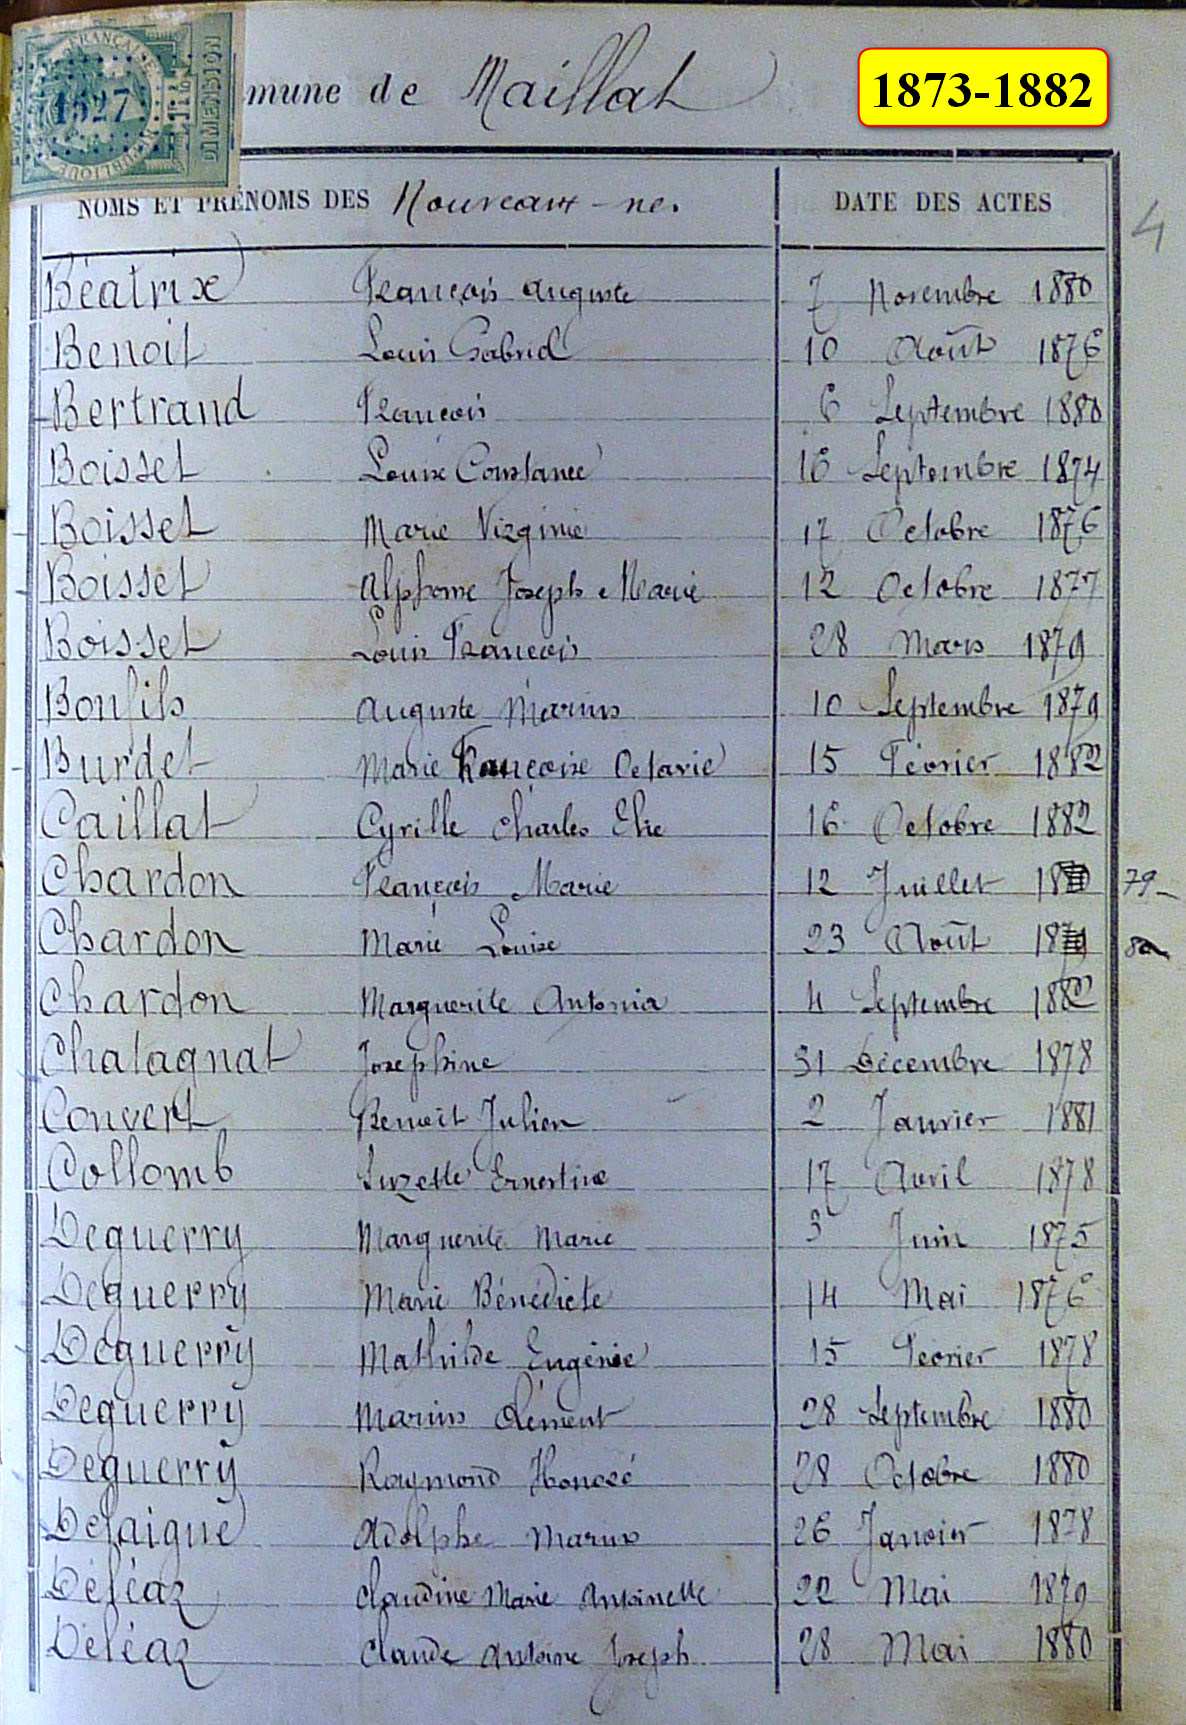 FRANÇAISE
1527
DIMENSION
mune de Maillat
1873-1882
NOMS ET PRÉNOMS DES Nouveaux-nés. DATE DES ACTES
4
Béatrix François Auguste 7 Novembre 1880
Benoit Louis Gabriel 10 Août 1876
Bertrand François 6 Septembre 1880
Boisset Louise Constance 16 Septembre 1874
Boisset Marie Virginie 17 Octobre 1876
Boisset Alphonse Joseph Marie 12 Octobre 1877
Boisset Louis François 28 Mars 1879
Bonfils Auguste Marius 10 Septembre 1879
Burdet Marie Françoise Octavie 15 Février 1882
Caillat Cyrille Charles Elie 16 Octobre 1882
Chardon François Marie 12 Juillet 18 79
Chardon Marie Louise 23 Août 18 80
Chardon Marguerite Antonia 4 Septembre 1882
Chatagnat Josephine 31 Décembre 1878
Convert Benoit Julien 2 Janvier 1881
Collomb Suzette Ernestine 17 Avril 1878
Deguerry Marguerite Marie 3 Juin 1875
Deguerry Marie Bénédicte 14 Mai 1876
Deguerry Mathilde Eugénie 15 Février 1878
Deguerry Marius Clément 28 Septembre 1880
Deguerry Raymond Honoré 28 Octobre 1880
Delaigue Adolphe Marius 26 Janvier 1878
Déléaz Claudine Marie Antoinette 22 Mai 1879
Déléaz Claude Antoine Joseph 28 Mai 1880